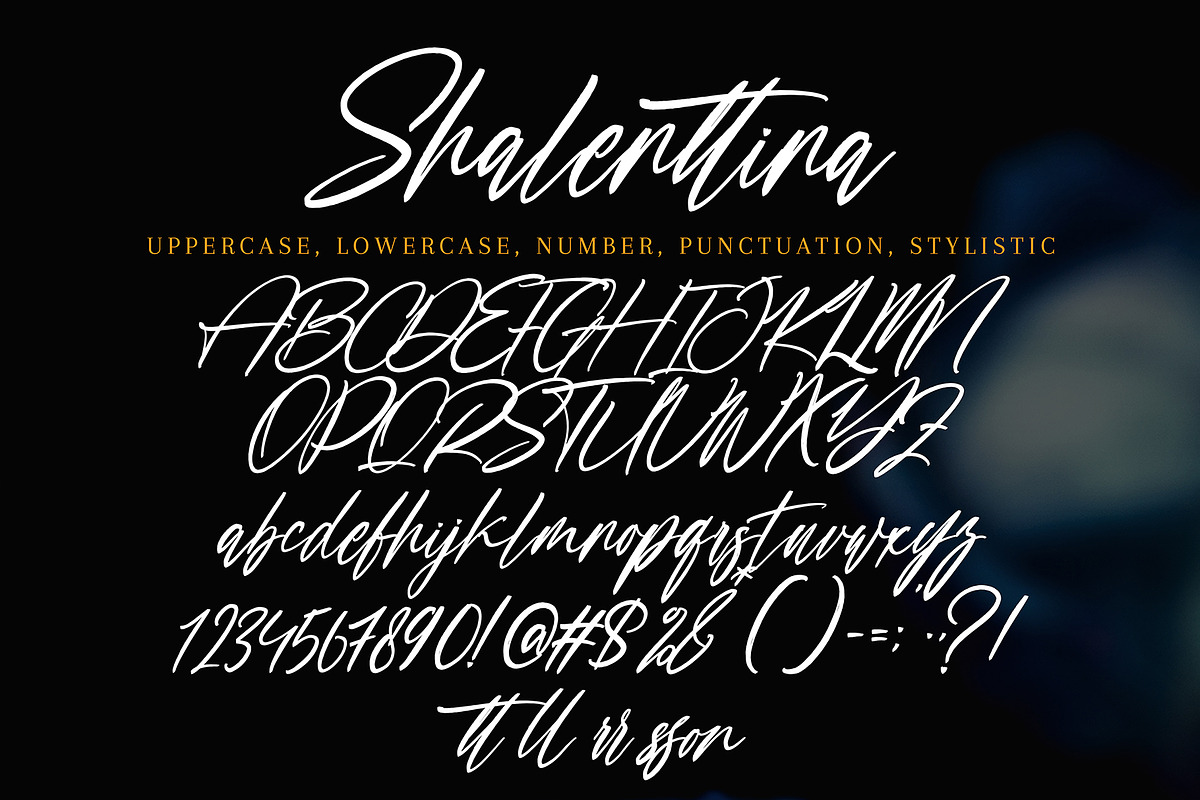 Shalenttina
UPPERCASE, LOWERCASE, NUMBER, PUNCTUATION, STYLISTIC
ABCDEFGHIJKLMN
OPQRSTUVWXYZ
abcdefhijklmnopqrstuvwxyz
1234567890!@#$%&*()-=;:,.?/
tt ll rr sson